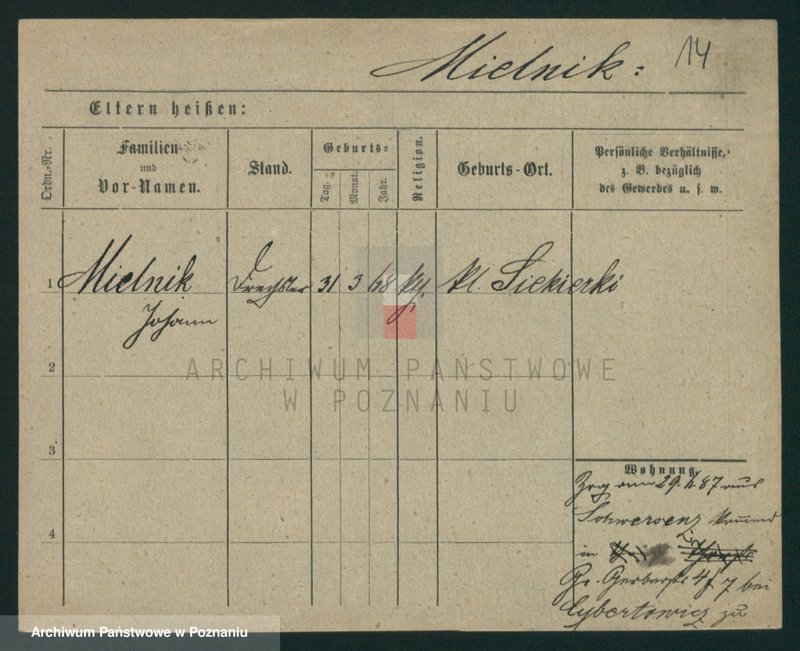 Mielnik: 14
Eltern heißen:
Ordn.-Nr.
Familien-
und
Vor-Namen.
Stand.
Geburts-
Tag.
Monat.
Jahr.
Religion.
Geburts-Ort.
Persönliche Verhältnisse,
z. B. bezüglich
des Gewerbes u. s. w.
1 Mielnik Drechsler 31 3 68 kt. Kl. Siekierki
Johann
2
3
4
ARCHIWUM PAŃSTWOWE
W POZNANIU
Wohnung.
Zog am 29. 87 aus
Schwersenz kommend
in
Gr. Gerberstr 7 bei
Cybertowicz zu
Archiwum Państwowe w Poznaniu